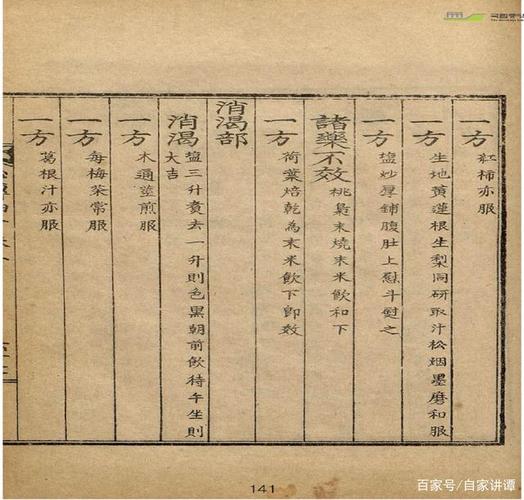 一方 紅柿亦服
一方 生地黃蓮根生梨同研取汁松烟墨磨和服
一方 塩炒厚鋪腹肚上熨斗熨之
諸藥不效 桃梟末燒末米飲和下
一方 荷葉焙乾為末米飲下即效
消渴部
消渴 塩三升煑去一升則色黑朝前飲待午坐則
大吉
一方 木通莖煎服
一方 每梅茶常服
一方 葛根汁亦服
141
百家号/自家讲谭